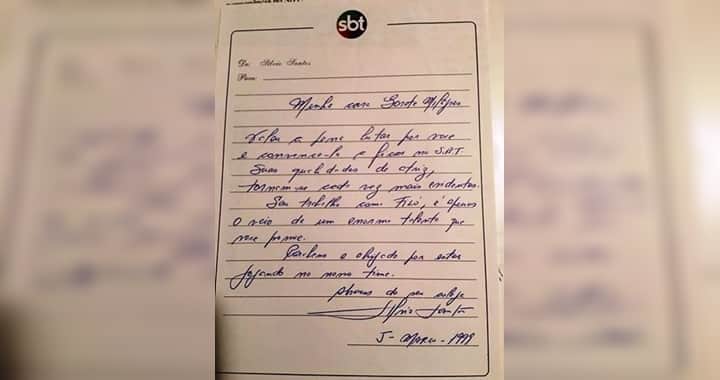 sbt
De: Silvio Santos
Para:
Minha cara Gorete Milagres
Valeu a pena lutar por você
e convencê-la a ficar no S.B.T.
Suas qualidades de atriz,
tornam-se cada vez mais evidentes.
Seu trabalho como Filó, é apenas
o veio de um enorme talento que
você possue.
Parabens e obrigado por estar
jogando no nosso time.
Abraços do seu colega
Silvio Santos
5 - Março - 1999